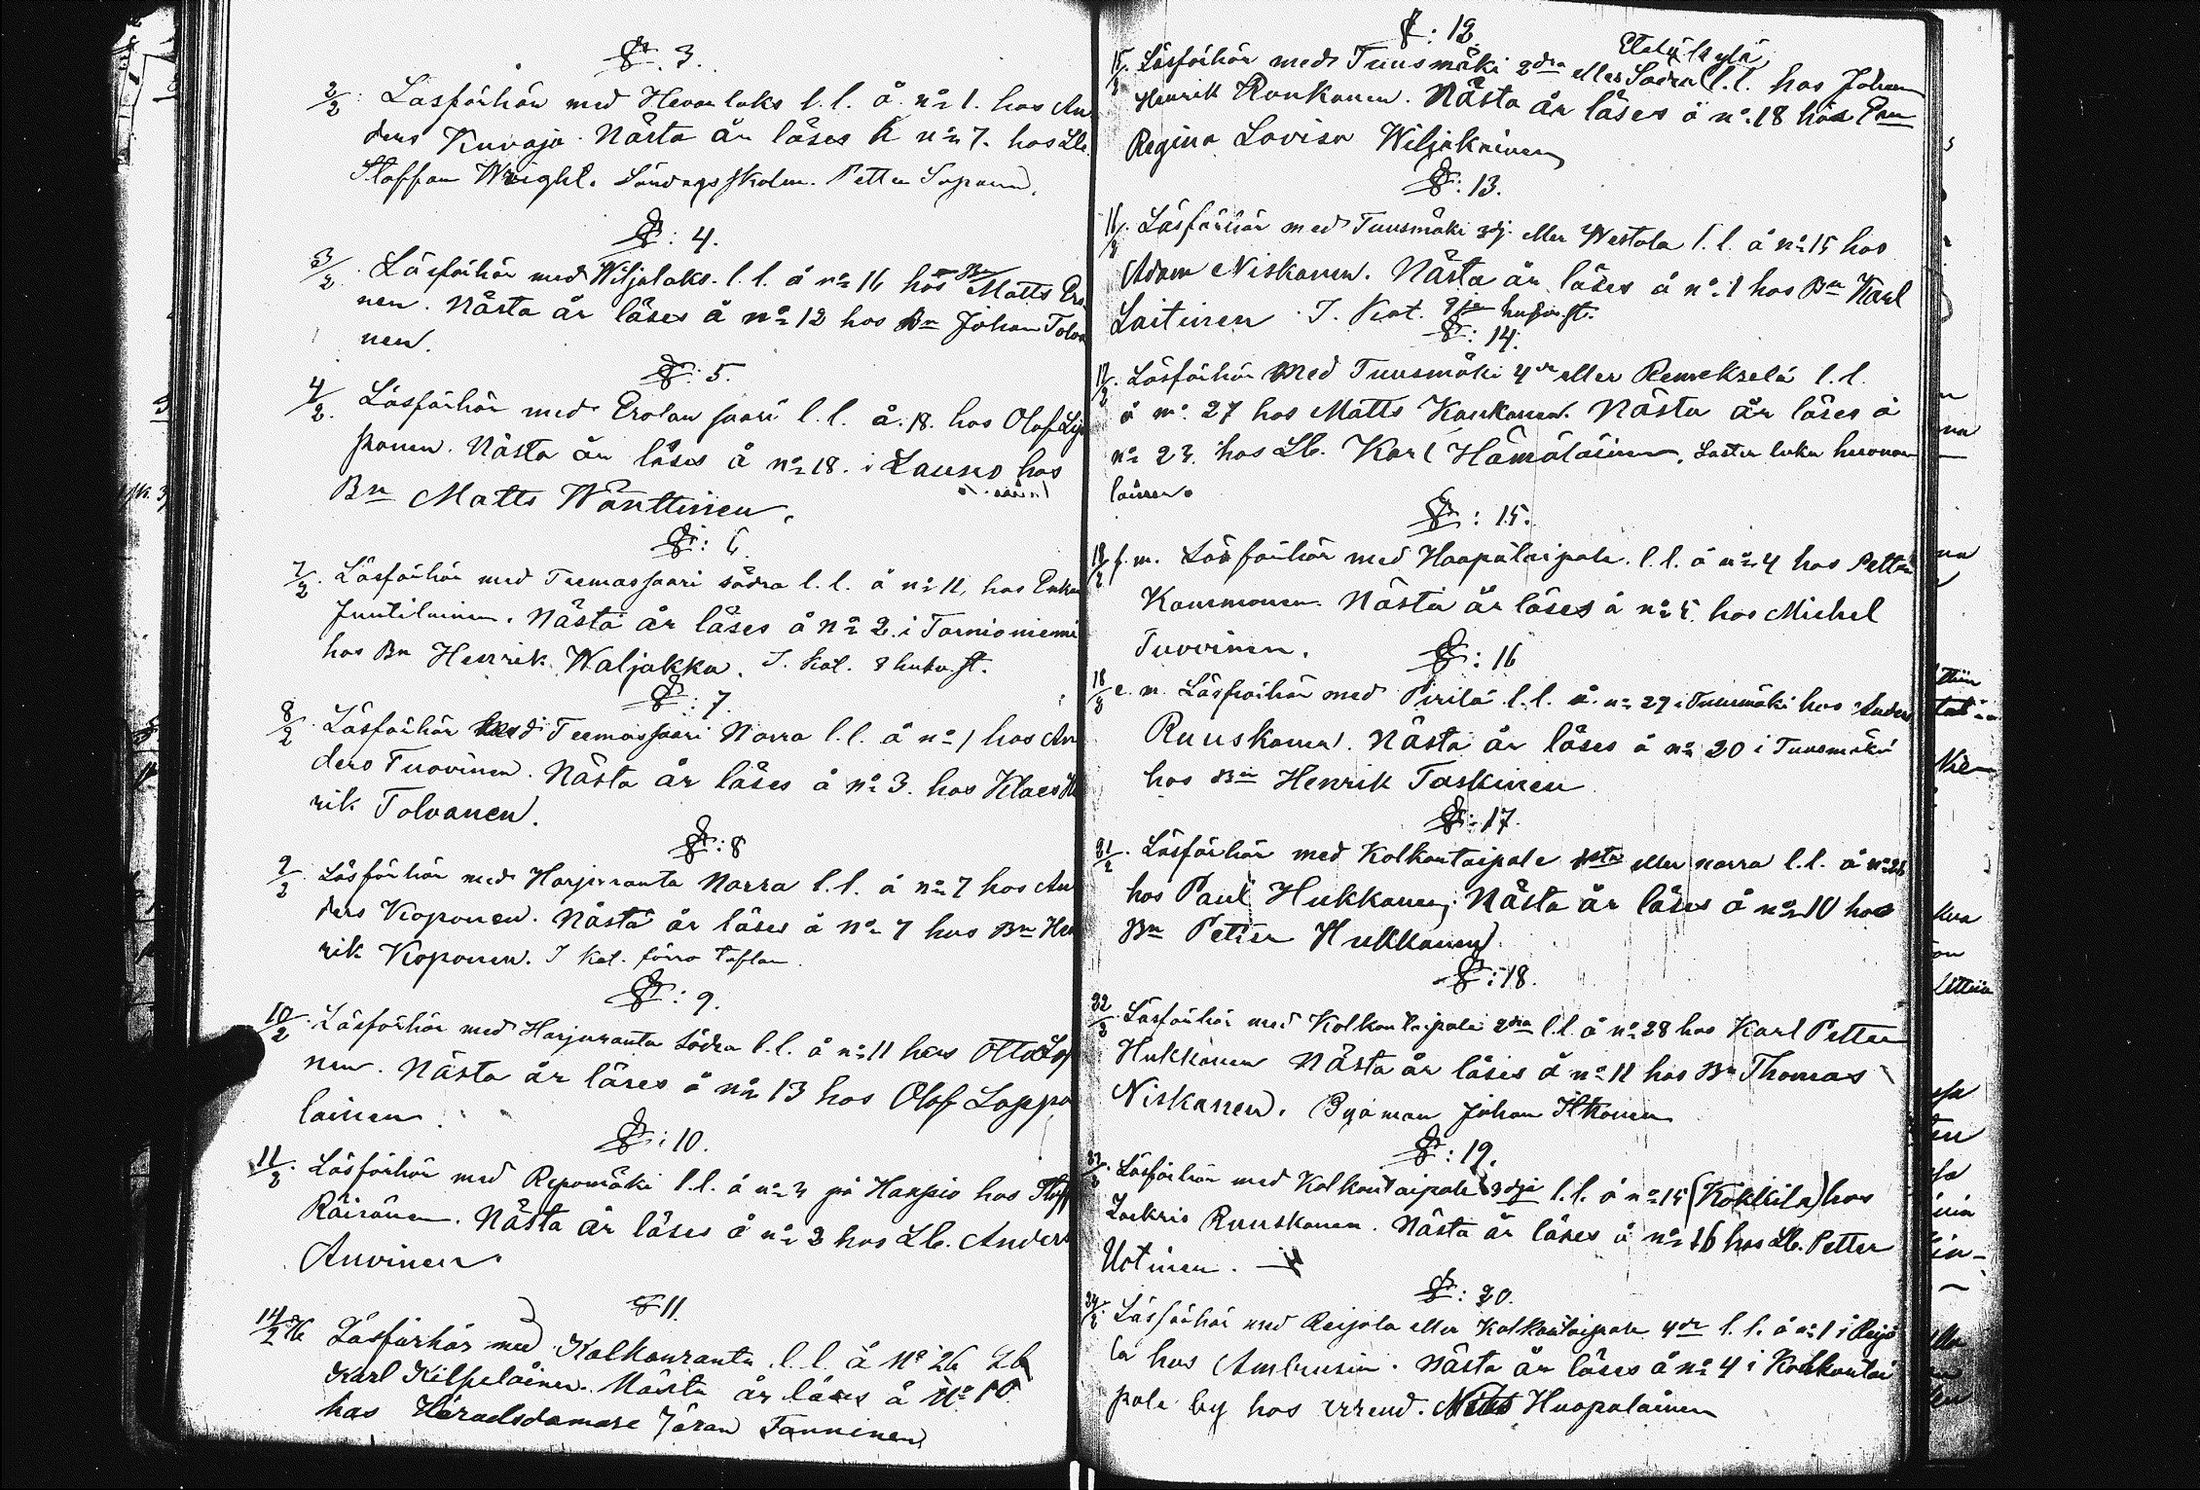 §. 3.
2/2. Läsförhör med Hevonlaks l.l. å no 1. hos An
ders Kuvaja. Nästa år läses å no 7. hos Lb.
Staffan Wright. Söndagsskolm. Petter Soponen.
§: 4.
3/2. Läsförhör med Wiljolaks. l.l. å no 16 hos Bn Matts Ero
nen. Nästa år läses å no 12 hos Bn Johan Tolva
nen.
§: 5.
4/2. Läsförhör med Erolansaari l.l. å. 18. hos Olof Lip
ponen. Nästa år läses å no 18. i Launo hos
Bn Matts Wänttinen.
§: 6.
7/2. Läsförhör med Teemassaari södra l.l. å no 11, hos
Juutilainen. Nästa år läses å no 2. i Tornioniemi
hos Bn Henrik Waljakka. I. Kat. 8 hufv. st.
§: 7.
8/2. Läsförhör med Teemassaari Norra l.l. å no 1 hos An
ders Tuovinen. Nästa år läses å no 3. hos Klaes He
rik Tolvanen.
§: 8
9/2. Läsförhör med Harjuranta Norra l.l. å no 7 hos An
ders Koponen. Nästa år läses å no 7 hos Bn Hen
rik Koponen. I Kat. förra taflan
§: 9.
10/2. Läsförhör med Harjuranta Södra l.l. å no 11 hos Otto Lop
nen. Nästa år läses å no 13 hos Olof Loppo
lainen.
§: 10.
11/2. Läsförhör med Repomäki l.l. å no 3 på Haapio hos Staff
Räisänen. Nästa år läses å no 2 hos Lb. Anders
Auvinen
§ 11.
14/2 76 Läsförhör med Kolkonranta l.l. å No 26 Lb
Karl Kilpeläinen. Nästa år läses å No 10.
hos Häradsdomare Jöran Tanninen
§: 12
15/2. Läsförhör med Tuusmäki 2dra eller Södra Etelä kylä l.l. hos Johan
Henrik Ronkanen. Nästa år läses å no 18 hos Enn
Regina Lovisa Wiljakainen
§: 13.
16/2. Läsförhör med Tuusmäki 3dj. eller Westola l.l. å no 15 hos
Adam Niskanen. Nästa år läses å no 1 hos Bn Karl
Laitinen. I. Kat. 9de hufv. st.
§: 14.
17/2. Läsförhör Med Tuusmäki 4de eller Remekselä l.l.
å no 27 hos Matts Kaukanen. Nästa år läses å
no 23. hos Lb. Karl Hämäläinen. Lasten luku huonon
lainen.
§: 15.
18/2 f.m. Läsförhör med Haapataipale. l.l. å no 4 hos Petter
Kaunonen. Nästa år läses å no 5. hos Michel
Tuovinen.
§: 16
18/2 e.m. Läsförhör med Pirilä l.l. å. no 29 i Tuusmäki hos Anders
Ruuskanen. Nästa år läses å no 20 i Tuusmäki
hos Bn Henrik Taskinen
§: 17.
21/2. Läsförhör med Kolkontaipale 1sta eller norra l.l. å no 26
hos Paul Hukkanen; Nästa år läses å no 10 hos
Bn Petter Hukkanen.
§: 18.
22/2. Läsförhör med Kolkontaipale 2dra l.l. å no 28 hos Karl Petter
Hukkanen Nästa år läses å no 11 hos Bn Thomas
Niskanen. Byäman Johan Ikonen
§: 19.
23/2. Läsförhör med Kolkontaipale 3dje l.l. å no 15 (Kokkila) hos
Zackris Ruuskanen. Nästa år läses å no 16 hos Lb. Petter
Uotinen.
§: 20.
24/2. Läsförhör med Reijola eller Kolkontaipale 4de l.l. å no 1 i Reijo
la hos Ambrusin. Nästa år läses å no 4 i Kolkontai
pale by hos arrend. Nils Huopalainen